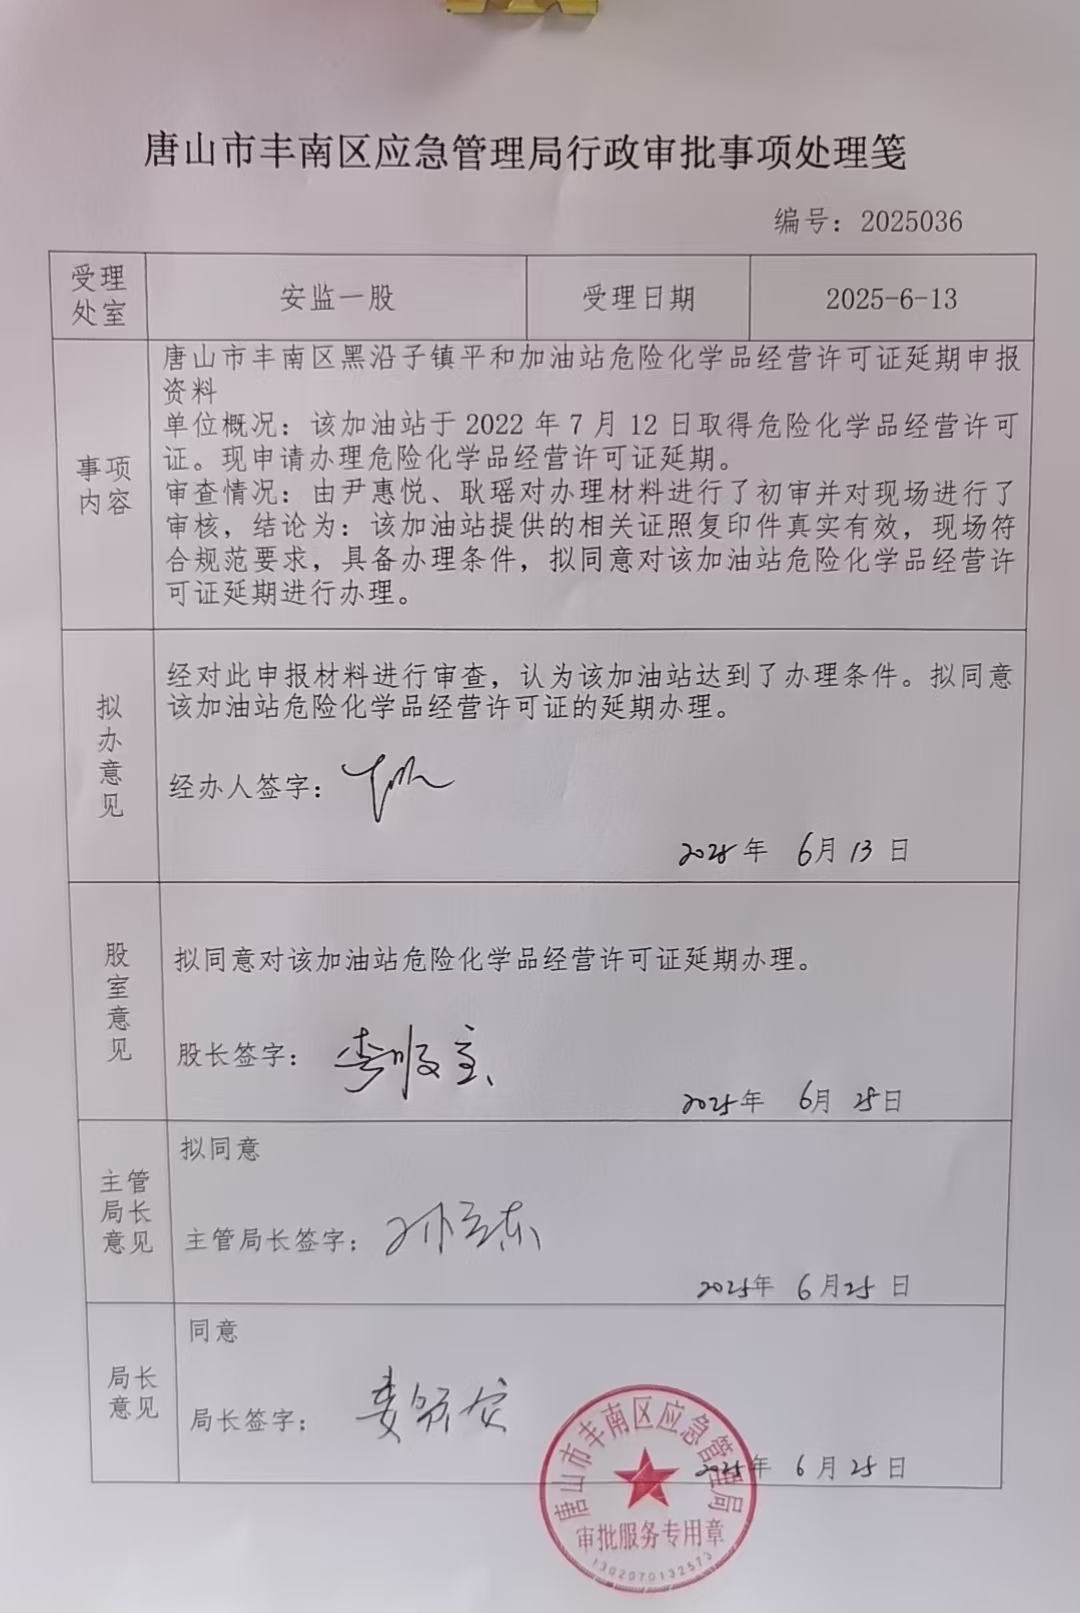 唐山市丰南区应急管理局行政审批事项处理笺
编号：2025036
受理处室
安监一股
受理日期
2025-6-13
事项内容
唐山市丰南区黑沿子镇平和加油站危险化学品经营许可证延期申报
资料
单位概况：该加油站于 2022 年 7 月 12 日取得危险化学品经营许可
证。现申请办理危险化学品经营许可证延期。
审查情况：由尹惠悦、耿瑶对办理材料进行了初审并对现场进行了
审核，结论为：该加油站提供的相关证照复印件真实有效，现场符
合规范要求，具备办理条件，拟同意对该加油站危险化学品经营许
可证延期进行办理。
拟办意见
经对此申报材料进行审查，认为该加油站达到了办理条件。拟同意
该加油站危险化学品经营许可证的延期办理。
经办人签字：
2025年 6月 13 日
股室意见
拟同意对该加油站危险化学品经营许可证延期办理。
股长签字：
2025年 6月 25日
主管局长意见
拟同意
主管局长签字：
2025年 6月25 日
局长意见
同意
局长签字：
2025年 6月 25日
唐山市丰南区应急管理局
审批服务专用章
1302070132573